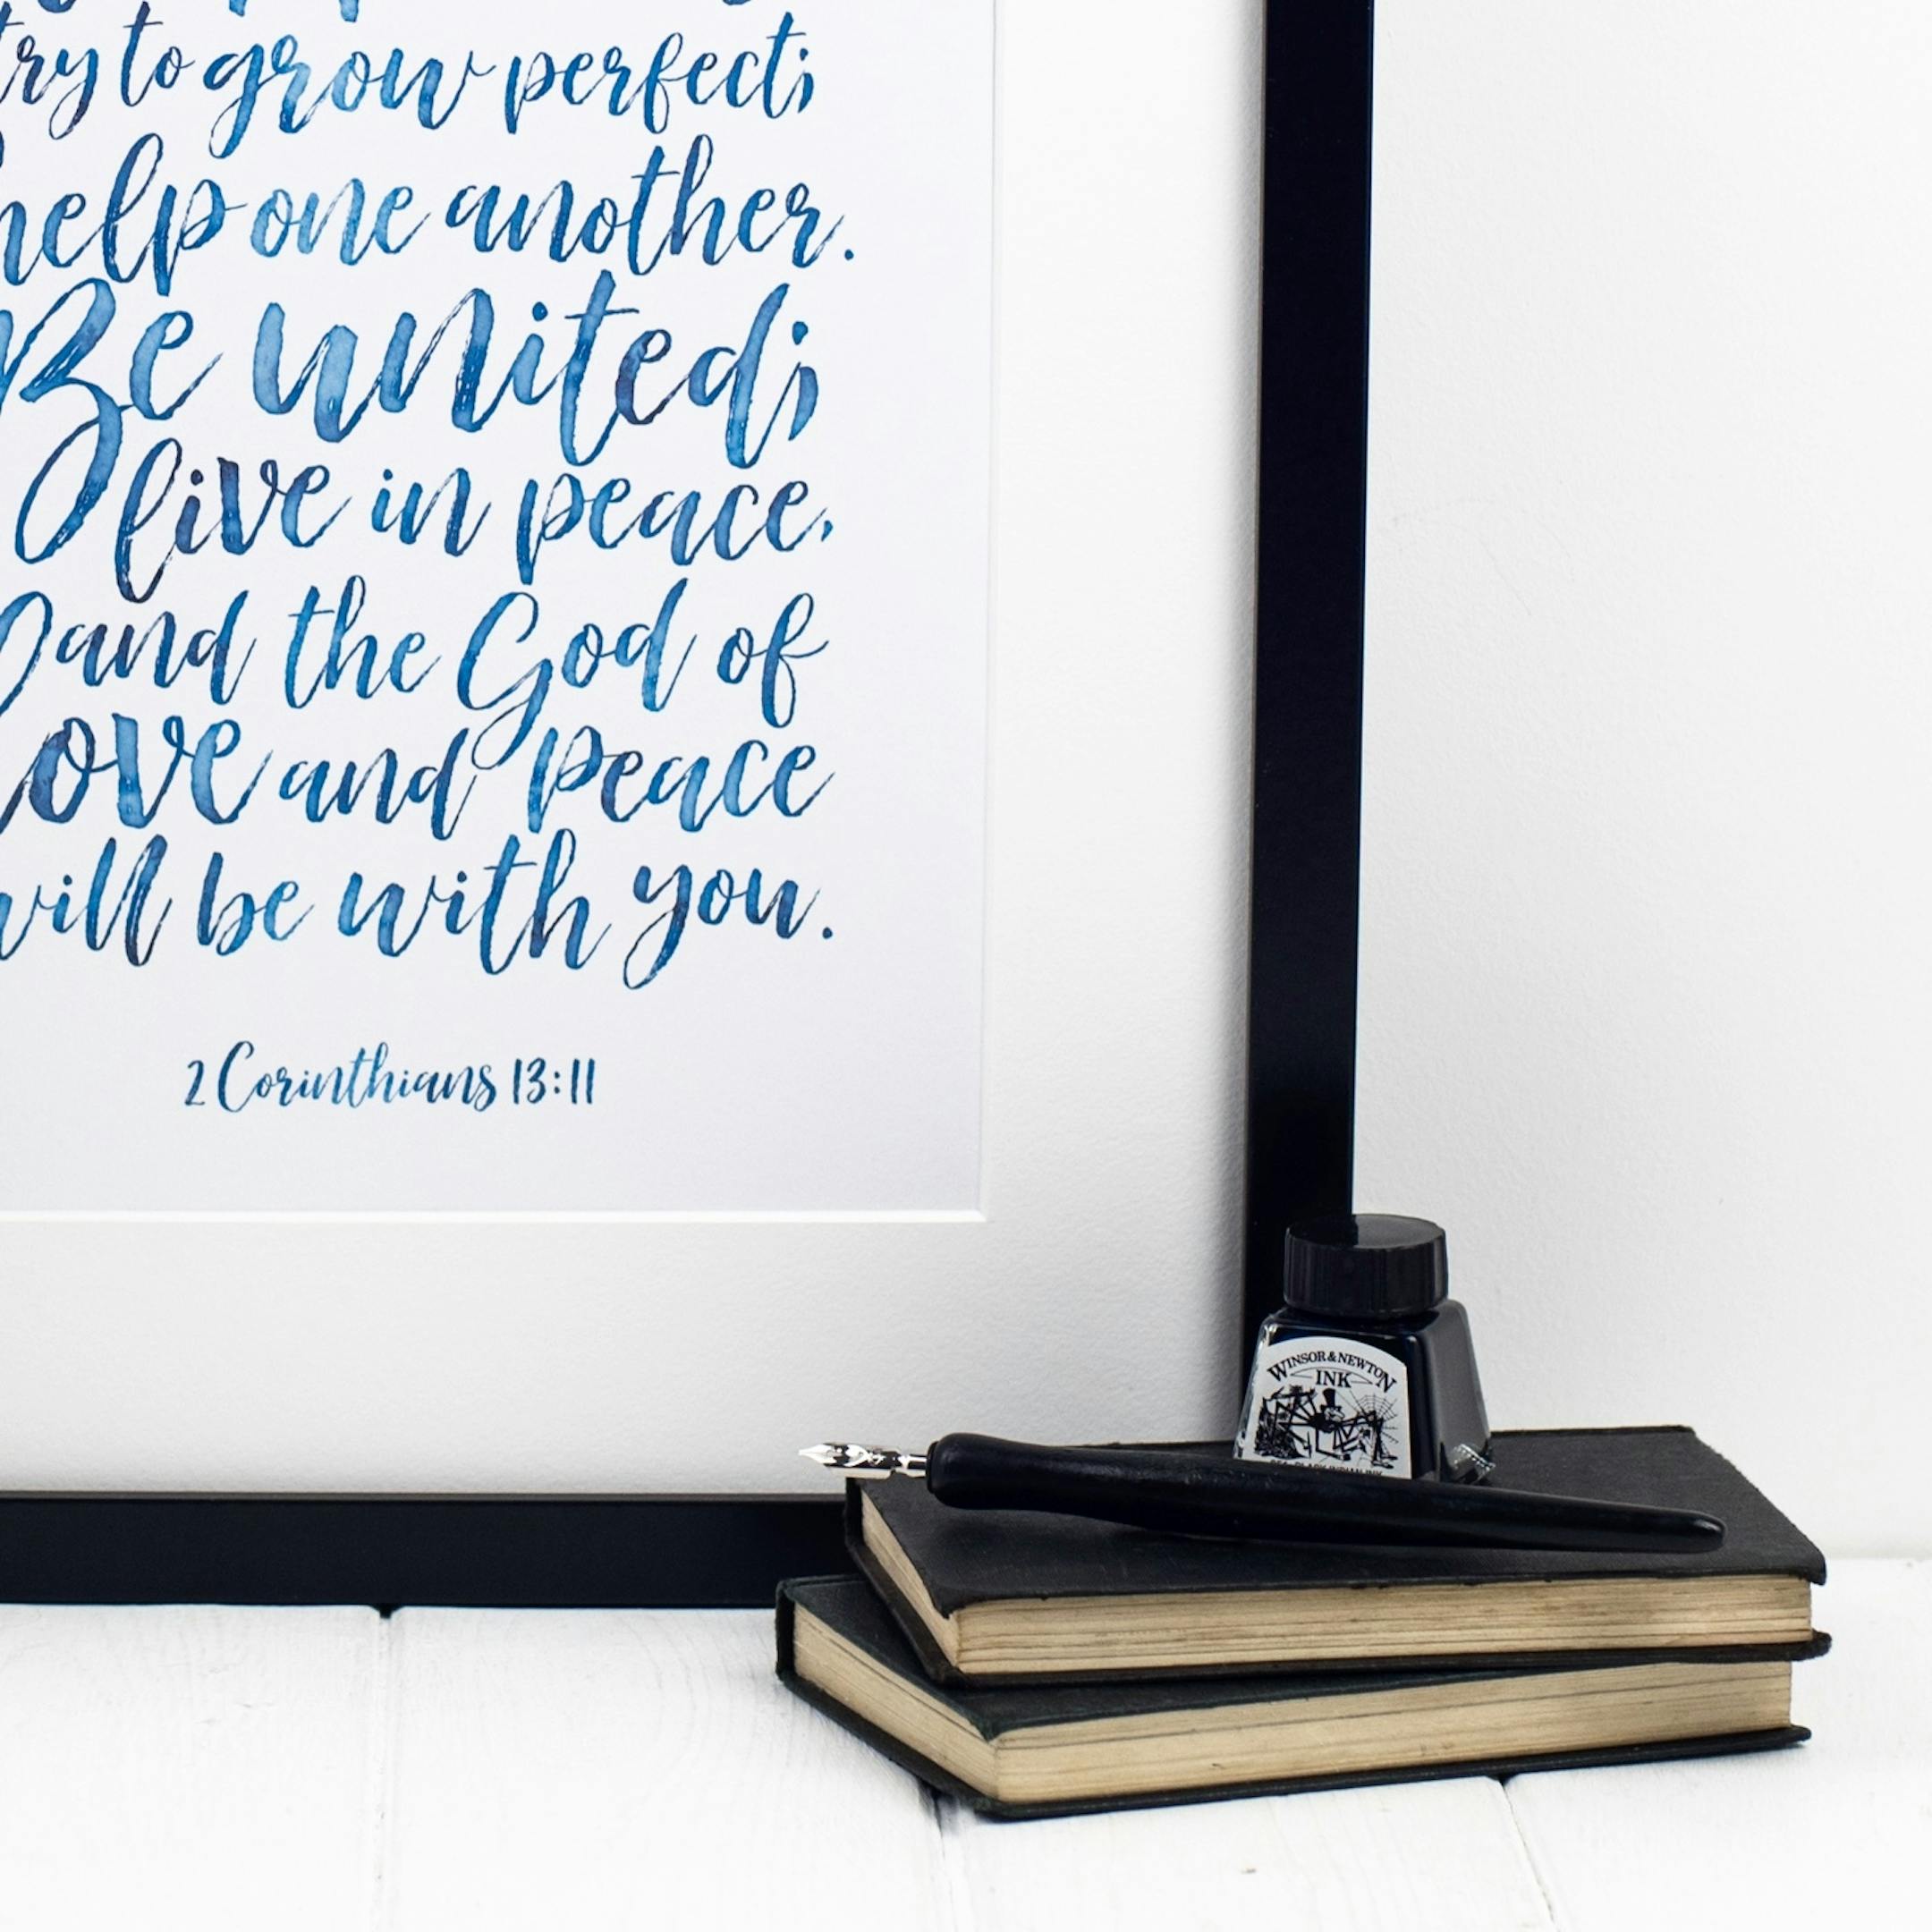 try to grow perfect;
help one another.
Be united;
live in peace,
and the God of
love and peace
will be with you.
2 Corinthians 13:11
WINSOR & NEWTON
INK